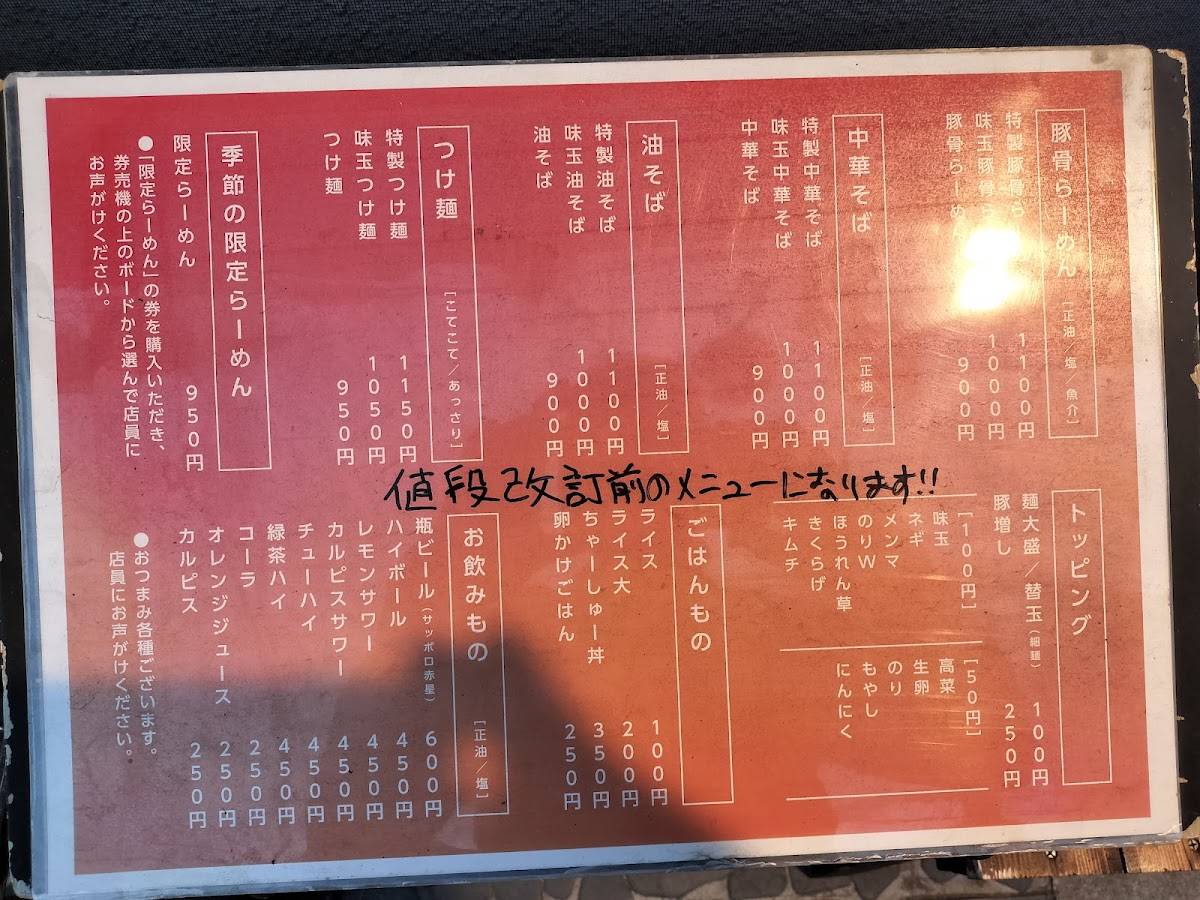 豚骨らーめん [正油／塩／魚介]
特製豚骨ら 1100円
味玉豚骨ら 1000円
豚骨らーめん 900円
中華そば [正油／塩]
特製中華そば 1100円
味玉中華そば 1000円
中華そば 900円
油そば [正油／塩]
特製油そば 1100円
味玉油そば 1000円
油そば 900円
つけ麺 [こてこて／あっさり]
特製つけ麺 1150円
味玉つけ麺 1050円
つけ麺 950円
季節の限定らーめん
限定らーめん 950円
●「限定らーめん」の券を購入いただき、
券売機の上のボードから選んで店員に
お声がけください。
値段改訂前のメニューになります!!
トッピング
麺大盛／替玉（細麺） 100円
豚増し 250円
[100円]
味玉
ネギ
メンマ
のりW
ほうれん草
きくらげ
キムチ
[50円]
高菜
生卵
のり
もやし
にんにく
ごはんもの
ライス 100円
ライス大 200円
ちゃーしゅー丼 350円
卵かけごはん 250円
お飲みもの [正油／塩]
瓶ビール（サッポロ赤星） 600円
ハイボール 450円
レモンサワー 450円
カルピスサワー 450円
チューハイ 450円
緑茶ハイ 450円
コーラ 250円
オレンジジュース 250円
カルピス 250円
●おつまみ各種ございます。
店員にお声がけください。